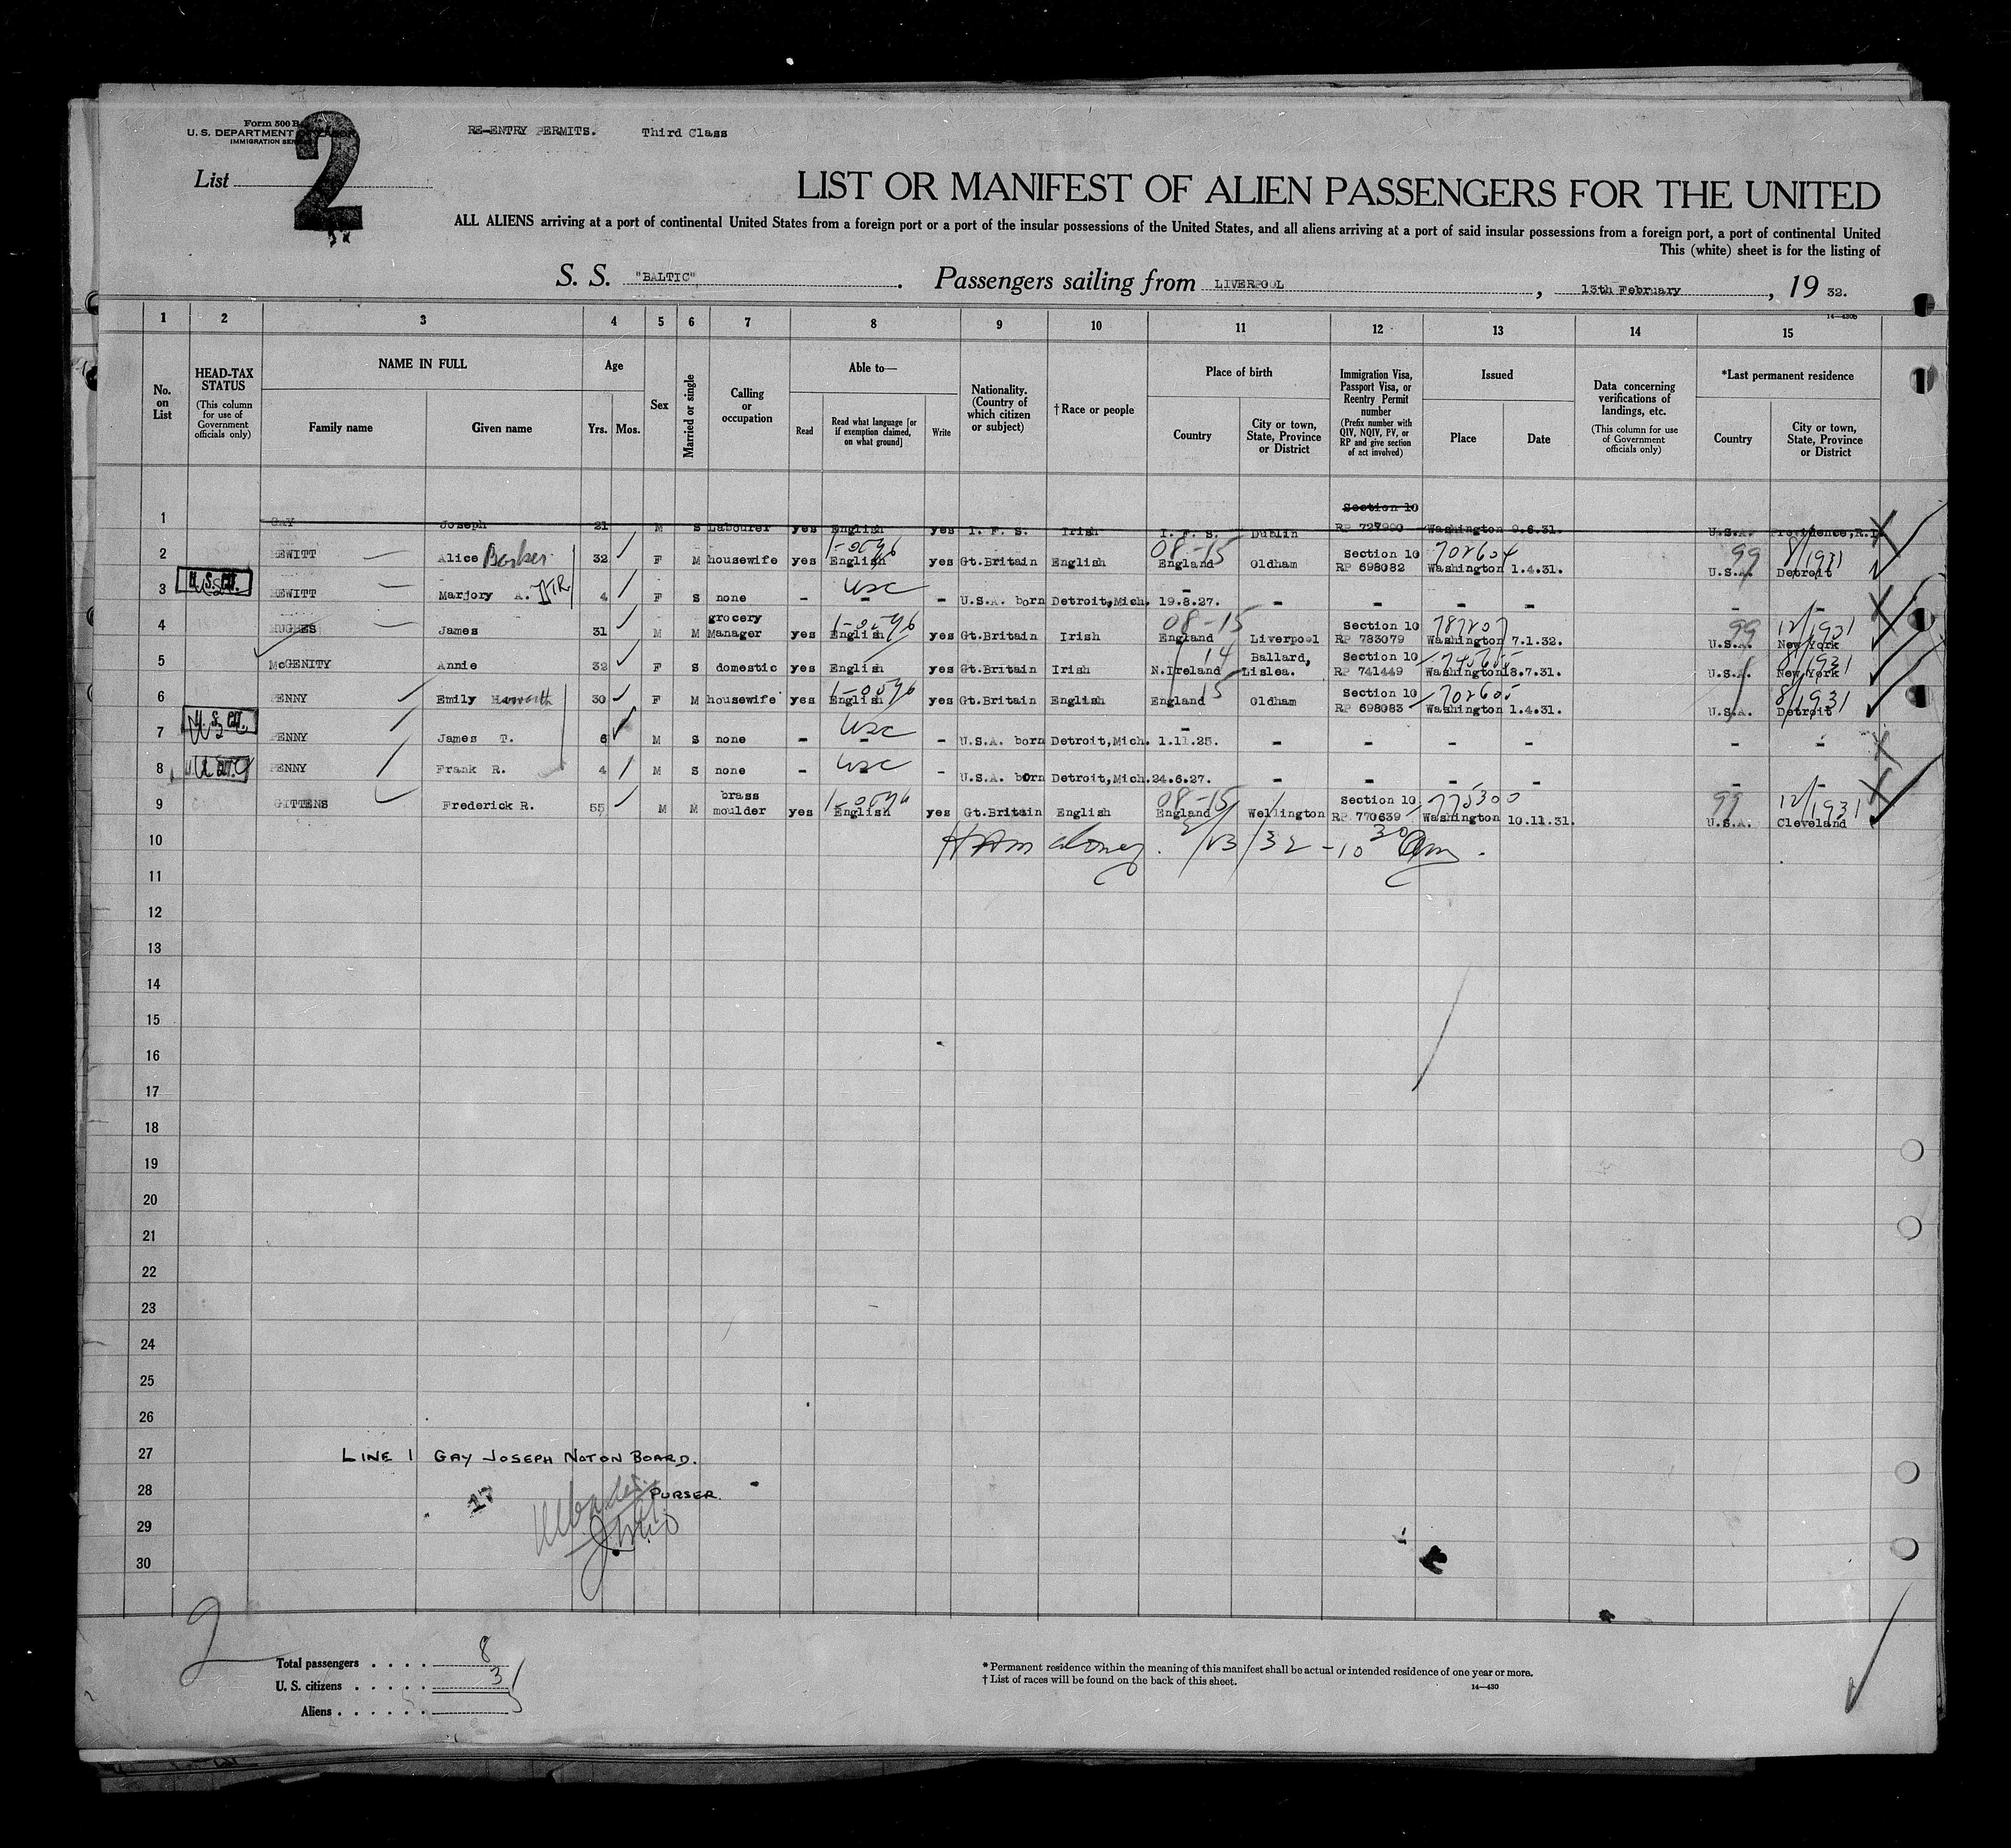 Form 500 B
U. S. DEPARTMENT OF LABOR
IMMIGRATION SERVICE
RE-ENTRY PERMITS. Third Class
List
2
LIST OR MANIFEST OF ALIEN PASSENGERS FOR THE UNITED
ALL ALIENS arriving at a port of continental United States from a foreign port or a port of the insular possessions of the United States, and all aliens arriving at a port of said insular possessions from a foreign port, a port of continental United
This (white) sheet is for the listing of
S. S. "BALTIC". Passengers sailing from LIVERPOOL, 13th February, 19 32.
14—430b
1 2 3 4 5 6 7 8 9 10 11 12 13 14 15
No. on List
HEAD-TAX STATUS
(This column for use of Government officials only)
NAME IN FULL
Family name
Given name
Age
Yrs. Mos.
Sex
Married or single
Calling or occupation
Able to—
Read
Read what language [or if exemption claimed, on what ground]
Write
Nationality. (Country of which citizen or subject)
†Race or people
Place of birth
Country
City or town, State, Province or District
Immigration Visa, Passport Visa, or Reentry Permit number
(Prefix number with QIV, NQIV, PV, or RP and give section of act involved)
Issued
Place
Date
Data concerning verifications of landings, etc.
(This column for use of Government officials only)
*Last permanent residence
Country
City or town, State, Province or District
Section 10
1 GAY Joseph 21 M S Labourer yes English yes I. F. S. Irish I. F. S. Dublin RP 727900 Washington 9.6.31. U.S.A. Providence, R.I.
1-0596 08-15 Section 10 702604 99 8/1931
2 HEWITT Alice Barker 32 F M housewife yes English yes Gt.Britain English England Oldham RP 698082 Washington 1.4.31. U.S.A. Detroit
U.S. CIT. USC
3 HEWITT Marjory A. 4 F S none - - - U.S.A. born Detroit, Mich. 19.8.27. - - - - - -
grocery 1-0596 08-15 Section 10 787207 99 12/1931
4 HUGHES James 31 M M Manager yes English yes Gt.Britain Irish England Liverpool RP 783079 Washington 7.1.32. U.S.A. New York
14 Ballard, Section 10 745655 8/1931
5 McGENITY Annie 32 F S domestic yes English yes Gt.Britain Irish N.Ireland Lislea. RP 741449 Washington 18.7.31. U.S.A. New York
1-0596 15 Section 10 702605 8/1931
6 PENNY Emily Haworth 30 F M housewife yes English yes Gt.Britain English England Oldham RP 698083 Washington 1.4.31. U.S.A. Detroit
U.S. CIT. USC
7 PENNY James T. 6 M S none - - - U.S.A. born Detroit, Mich. 1.11.25. - - - - - -
USC
8 PENNY Frank R. 4 M S none - - - U.S.A. born Detroit, Mich. 24.6.27. - - - - - -
brass 1-0596 08-15 Section 10 775300 99 12/1931
9 GITTENS Frederick R. 55 M M moulder yes English yes Gt.Britain English England Wellington RP 770639 Washington 10.11.31. U.S.A. Cleveland
10
11
12
13
14
15
16
17
18
19
20
21
22
23
24
25
26
27 LINE 1 GAY JOSEPH NOT ON BOARD.
28 17 PURSER.
29
30
2
Total passengers 8
U. S. citizens 3
Aliens 5
* Permanent residence within the meaning of this manifest shall be actual or intended residence of one year or more.
† List of races will be found on the back of this sheet.
14—430